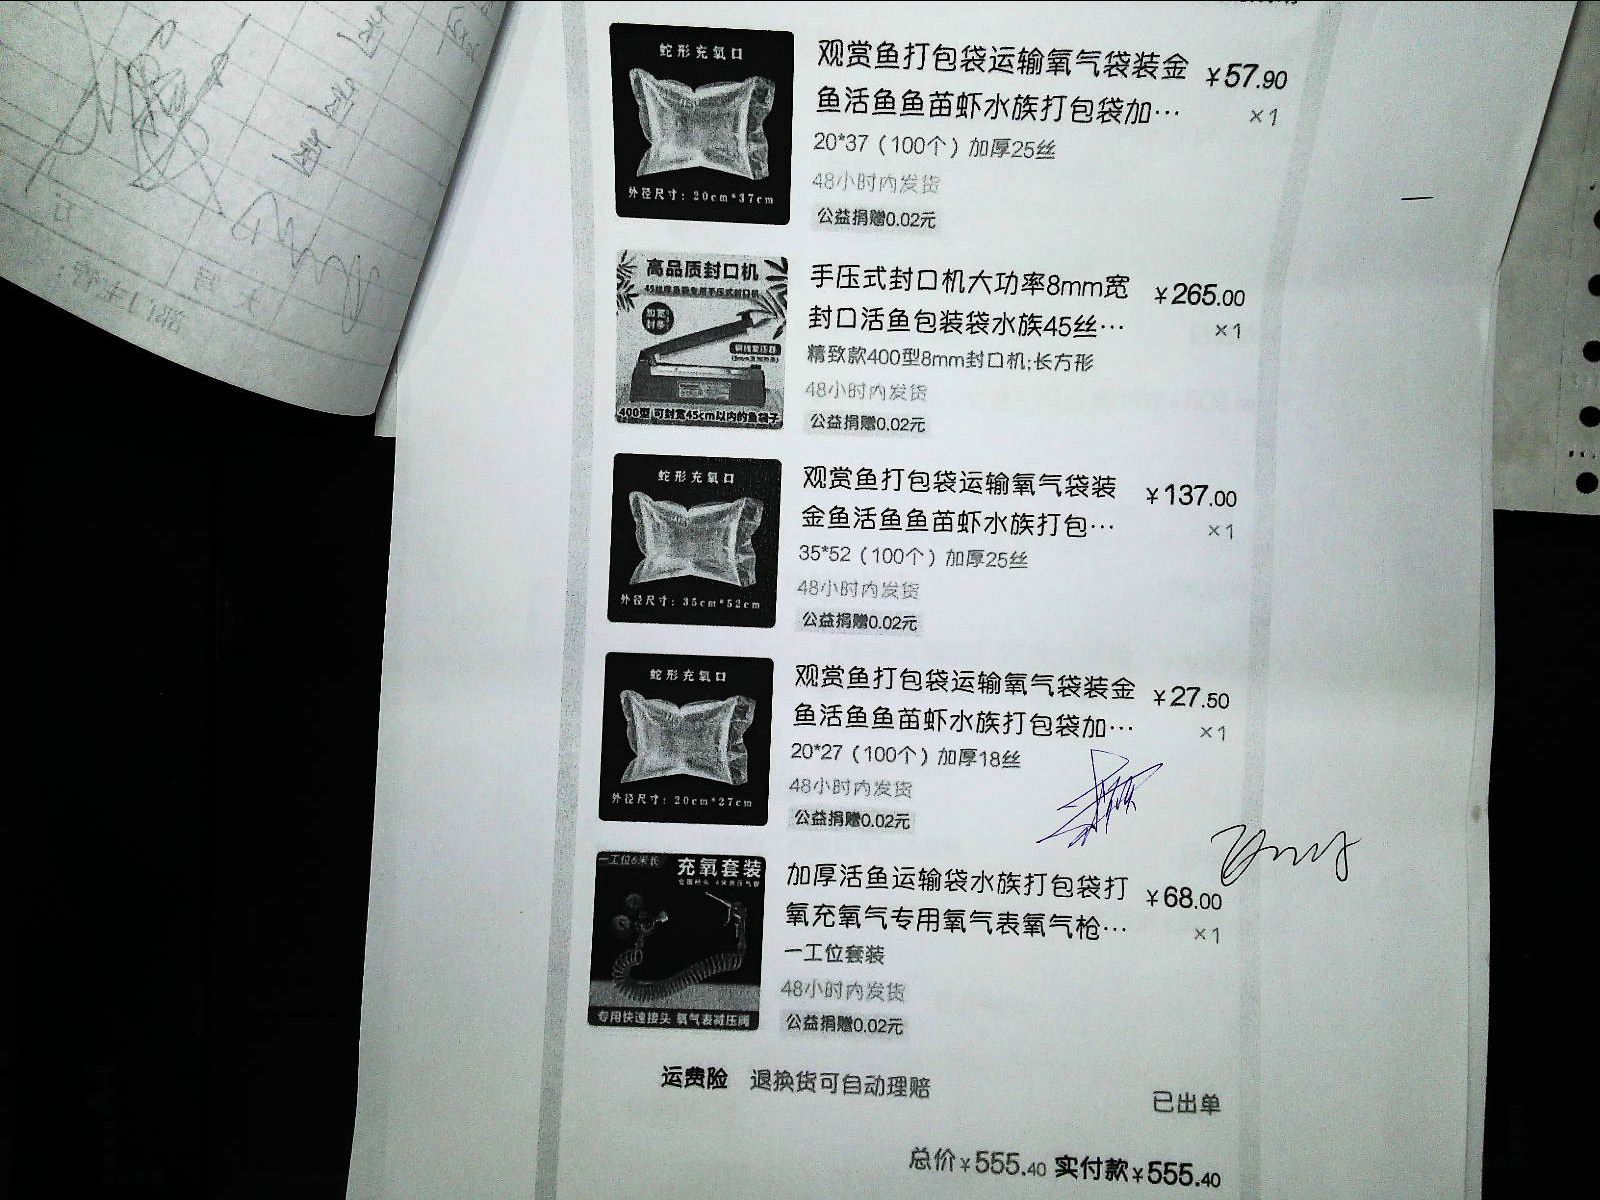 蛇形充氧口
外径尺寸：20cm*37cm
观赏鱼打包袋运输氧气袋装金
鱼活鱼鱼苗虾水族打包袋加…
¥57.90
×1
20*37（100个）加厚25丝
48小时内发货
公益捐赠0.02元
高品质封口机
加宽
封条
400型 可封宽45cm以内的鱼袋子
手压式封口机大功率8mm宽
封口活鱼包装袋水族45丝…
¥265.00
×1
精致款400型8mm封口机;长方形
48小时内发货
公益捐赠0.02元
蛇形充氧口
外径尺寸：35cm*52cm
观赏鱼打包袋运输氧气袋装
金鱼活鱼鱼苗虾水族打包…
¥137.00
×1
35*52（100个）加厚25丝
48小时内发货
公益捐赠0.02元
蛇形充氧口
外径尺寸：20cm*27cm
观赏鱼打包袋运输氧气袋装金
鱼活鱼鱼苗虾水族打包袋加…
¥27.50
×1
20*27（100个）加厚18丝
48小时内发货
公益捐赠0.02元
一工位6米长
充氧套装
专用快速接头 氧气表减压阀
加厚活鱼运输袋水族打包袋打
氧充氧气专用氧气表氧气枪…
¥68.00
×1
一工位套装
48小时内发货
公益捐赠0.02元
运费险 退换货可自动理赔
已出单
总价¥555.40 实付款¥555.40